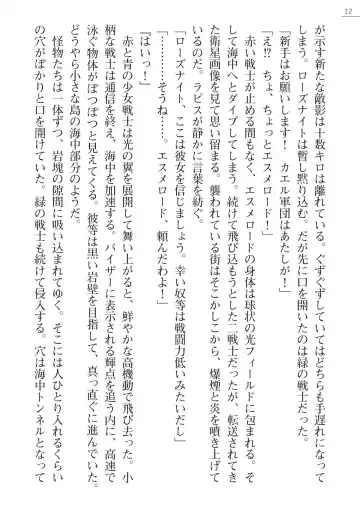 12
が示す新たな敵影は十数キロは離れている。ぐずぐずしていてはどちらも手遅れになって
しまう。ローズナイトは暫し黙り込む。だが先に口を開いたのは緑の戦士だった。
「新手はお願いします！　カエル軍団はあたしが！」
「え!?　ちょ、ちょっとエスメロード！」
赤い戦士が止める間もなく、エスメロードの身体は球状の光フィールドに包まれる。そ
して海中へとダイブしてしまう。続けて飛び込もうとした二戦士だったが、転送されてき
た衛星画像を見て思い留まる。襲われている街はそこかしこから、爆煙と炎を噴き上げて
いるのだ。ラピスが静かに言葉を紡ぐ。
「ローズナイト、ここは彼女を信じましょう。幸い奴等は戦闘力低いみたいだし」
「……そうね……。エスメロード、頼んだわよ！」
『はいっ！』
赤と青の少女戦士は光の翼を展開して舞い上がると、鮮やかな高機動で飛び去った。小
柄な戦士は通信を終え、海中を加速する。バイザーに表示される輝点を追う内に、高速で
泳ぐ物体がぽつぽつと見えてくる。彼等は黒い岩壁を目指して、真っ直ぐに進んでいた。
とある小さな島の海中部分のようだ。
怪物たちは一体ずつ、岩塊の隙間に吸い込まれてゆく。そこには人ひとり入れるくらい
の穴がぽかりと口を開けていた。緑の戦士も続けて侵入する。穴は海中トンネルとなって